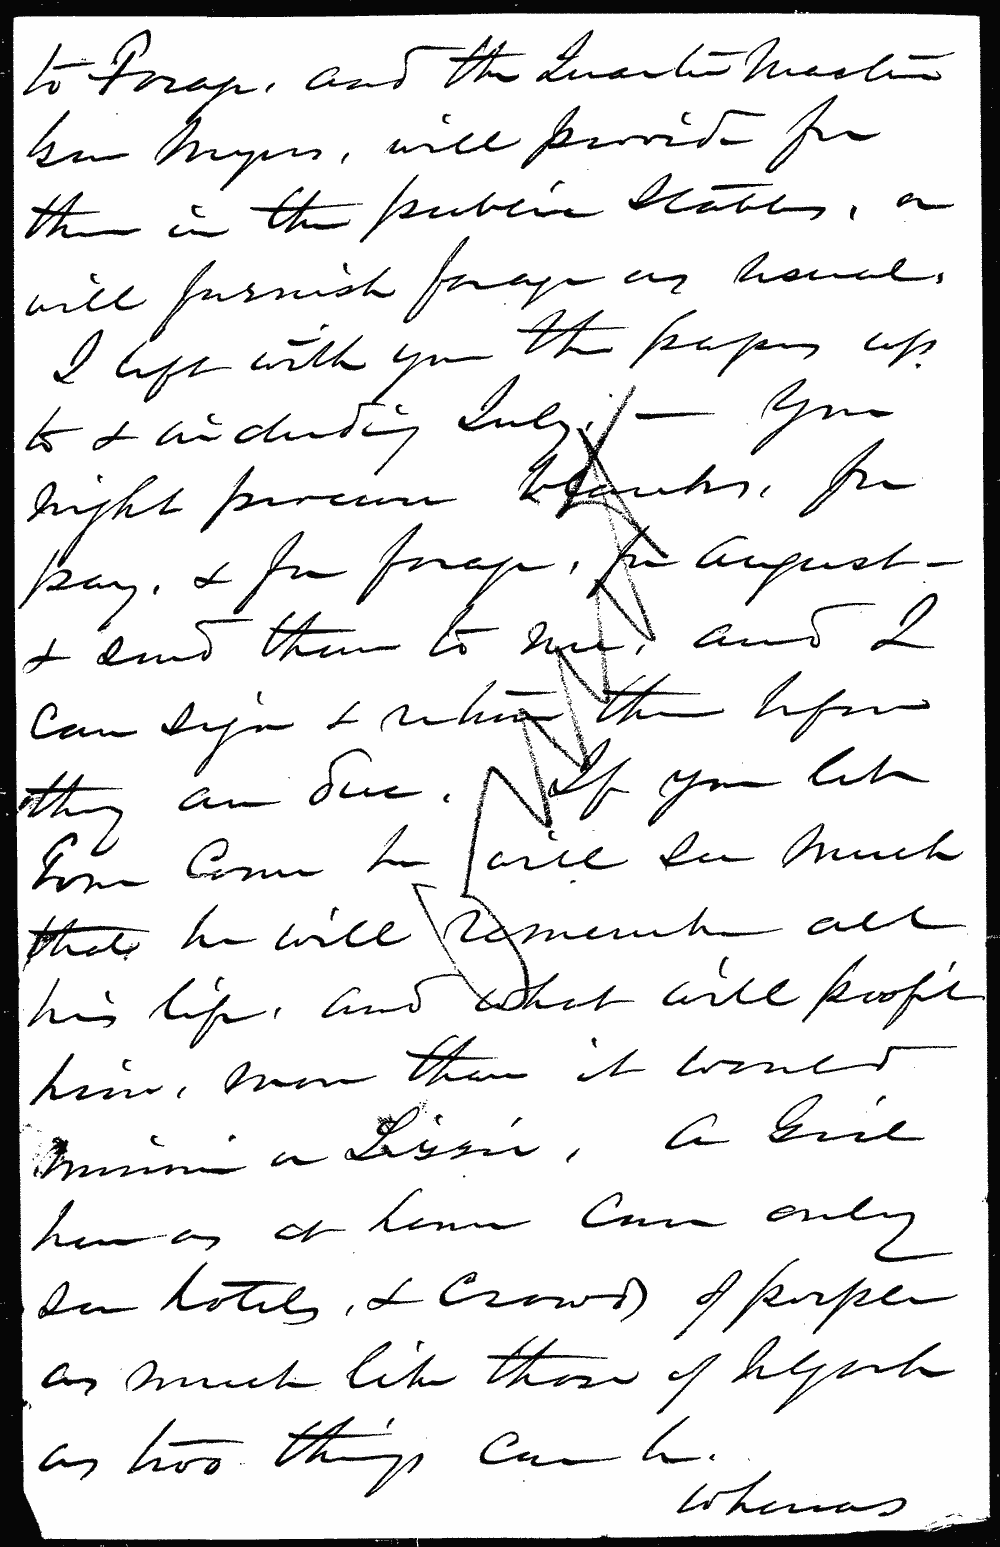 to Forage, and the Quarter Master
Gen Myers, will provide for
them in the public Stables, or
will furnish forage as usual.
I left with you the papers up
to & including July, — You
might procure blanks, for
pay, & for forage, for August –
& send them to me, and I
can sign & return them before
they are due. If you let
Tom Come he will see much
that he will remember all
his life, and what will profit
him, more than it would
Minnie or Lizzie, A Girl
here as at home can only
see hotels, & Crowds of people
as much like those of N York
as two things can be.
Whereas